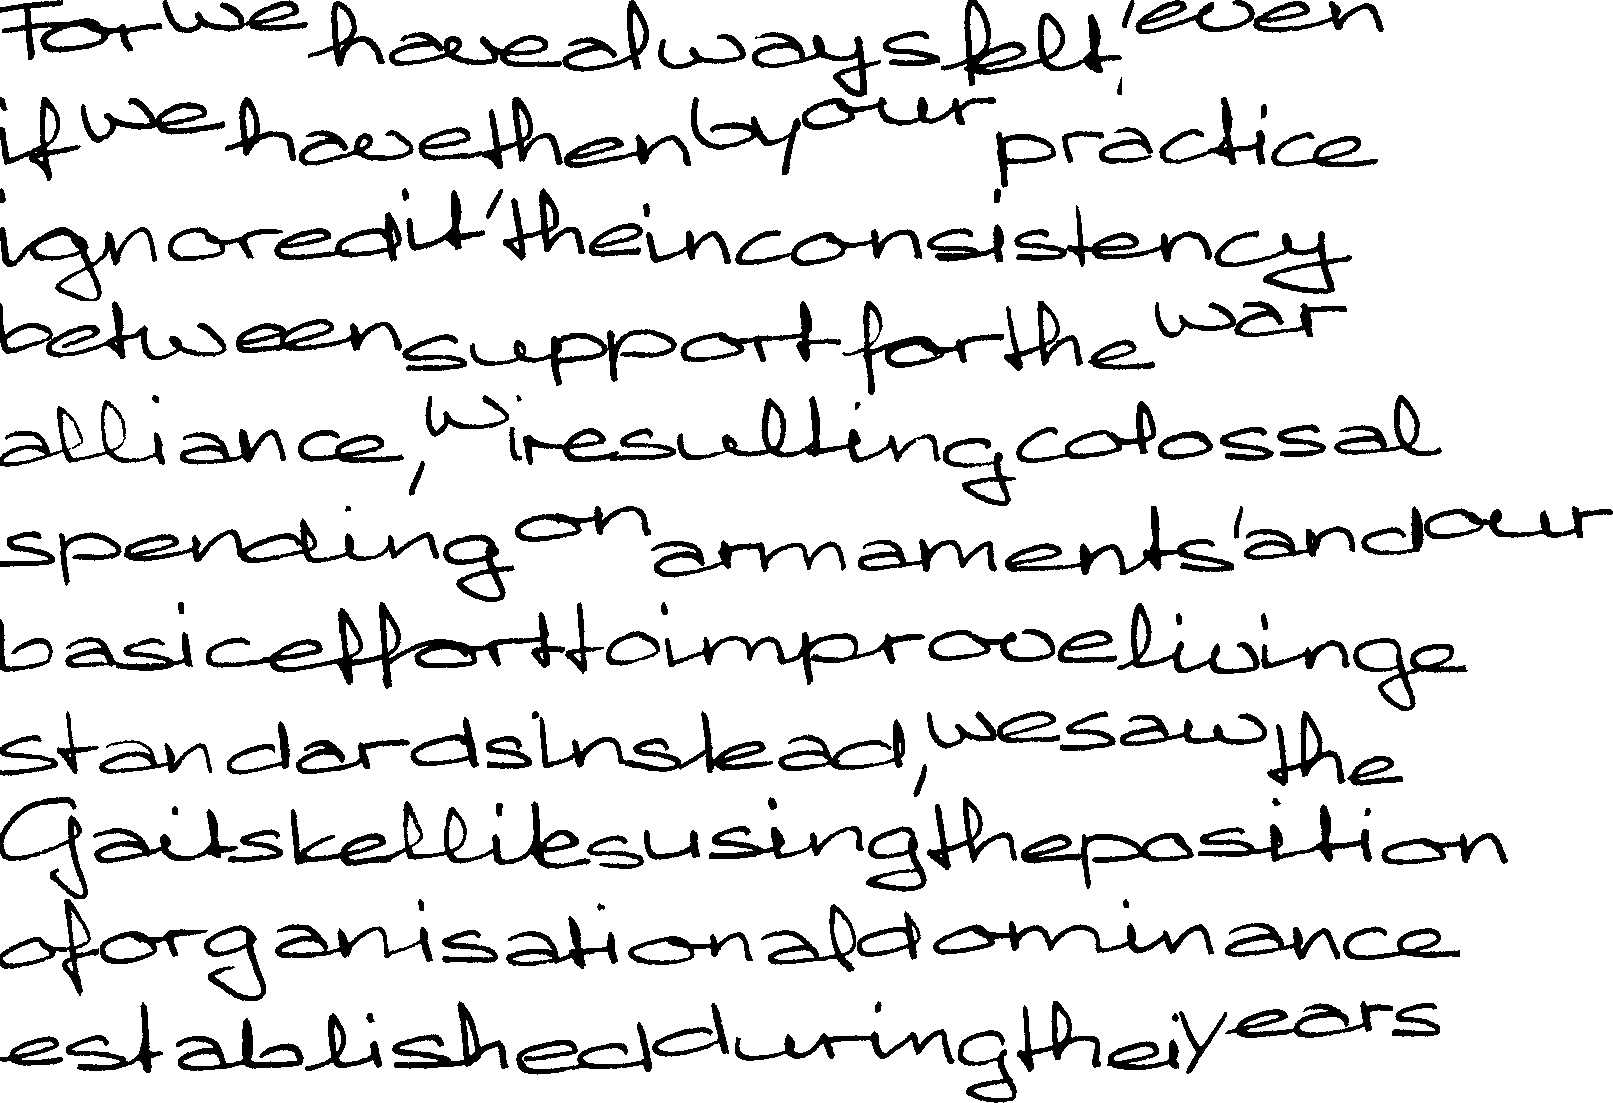 For we have always felt, 'even
if we have then by our practice
ignored it' the inconsistency
between support for the war
alliance, wi resulting colossal
spending on armaments 'and our
basic effort to improve livinge
standards instead, we saw the
Gaitskellites using the position
of organisational dominance
established during the years